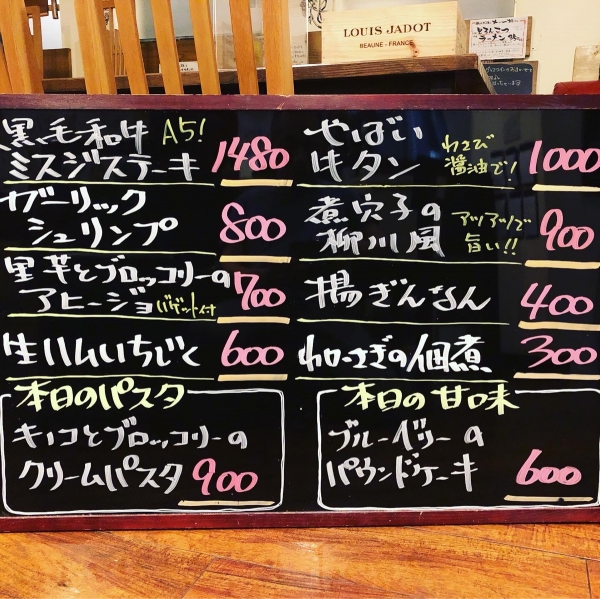 LOUIS JADOT
BEAUNE - FRANCE
黒毛和牛 A5!
ミスジステーキ 1480
ガーリック
シュリンプ 800
里芋とブロッコリーの
アヒージョ バゲット付 700
生ハムいちじく 600
本日のパスタ
キノコとブロッコリーの
クリームパスタ 900
やばい
牛タン わさび
醤油で! 1000
煮穴子の
柳川風 アツアツで
旨い!! 900
揚ぎんなん 400
わかさぎの佃煮 300
本日の甘味
ブルーベリーの
パウンドケーキ 600